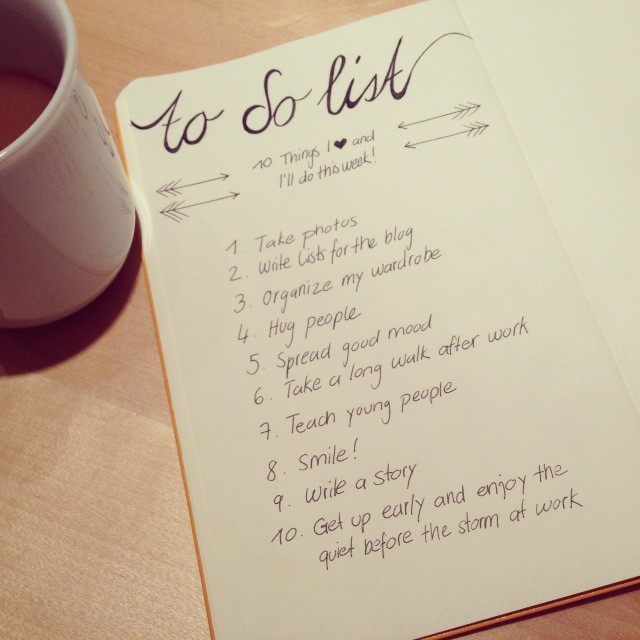 to do list
10 Things I ♥ and
I'll do this week!
1. Take photos
2. Write Lists for the blog
3. Organize my wardrobe
4. Hug people
5. Spread good mood
6. Take a long walk after work
7. Teach young people
8. Smile!
9. Write a story
10. Get up early and enjoy the
quiet before the storm at work